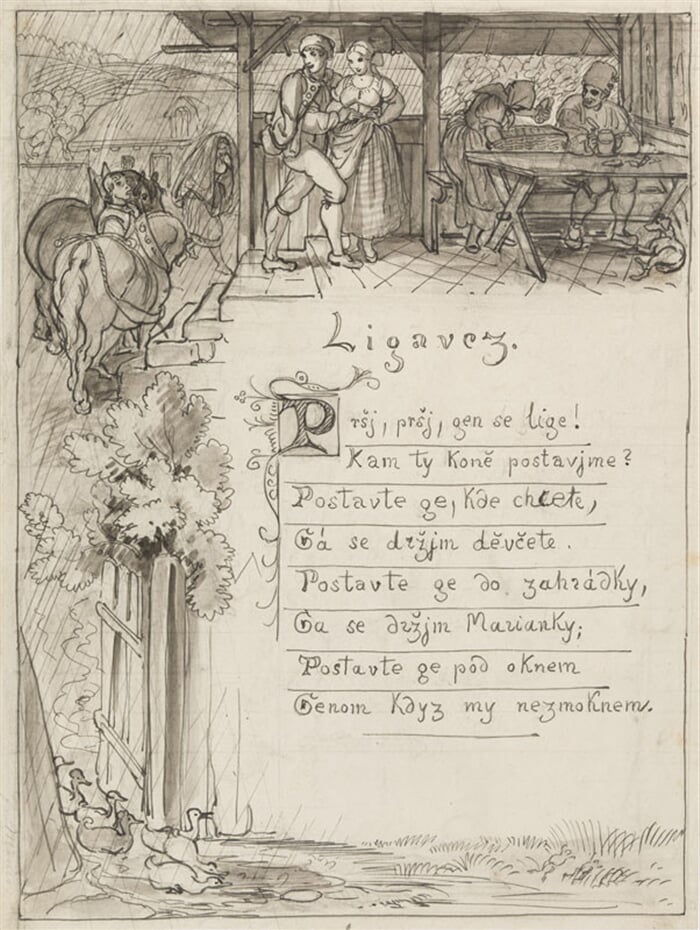 Ligavez.
Pršj, pršj, gen se lige!
Kam ty koně postavjme?
Postavte ge, kde chcete,
Gá se držjm děvčete.
Postavte ge do zahrádky,
Ga se držjm Marianky;
Postavte ge pod oknem
Genom když my nezmoknem.